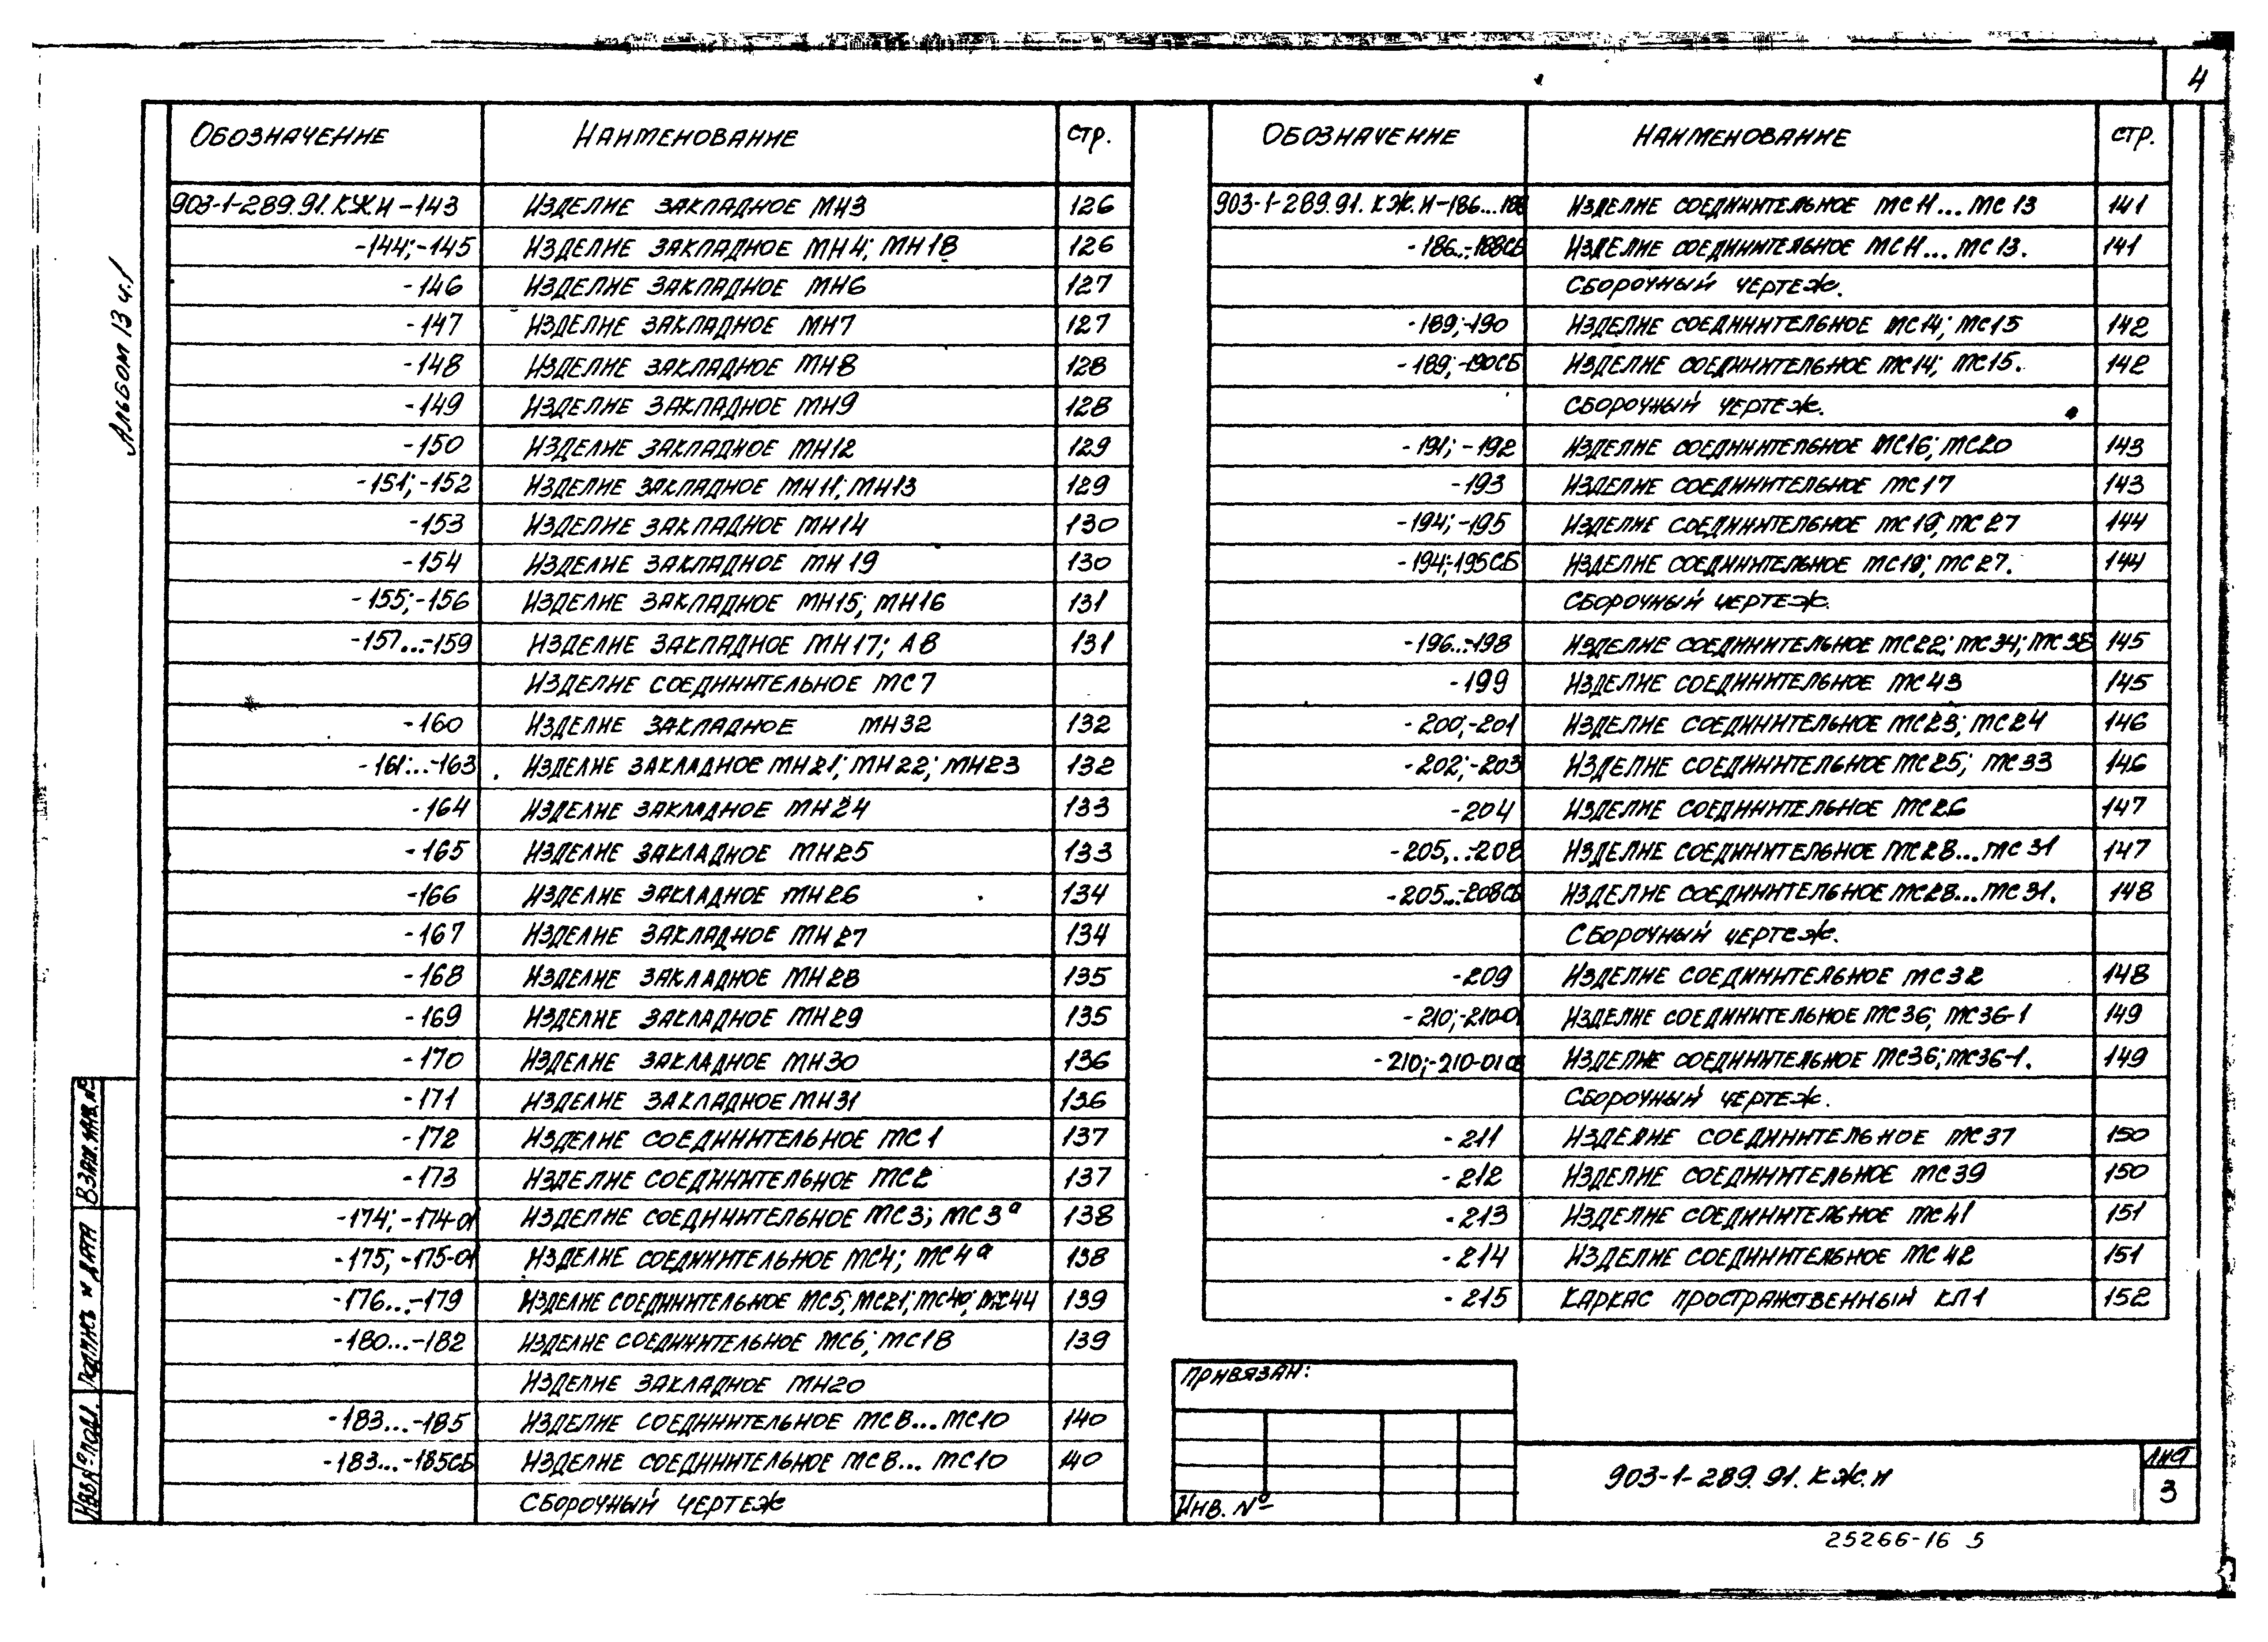 4
Альбом 13 ч.1
ОБОЗНАЧЕНИЕ НАИМЕНОВАНИЕ СТР.
903-1-289.91.КЖ.И-143 ИЗДЕЛИЕ ЗАКЛАДНОЕ МН3 126
-144;-145 ИЗДЕЛИЕ ЗАКЛАДНОЕ МН4; МН18 126
-146 ИЗДЕЛИЕ ЗАКЛАДНОЕ МН6 127
-147 ИЗДЕЛИЕ ЗАКЛАДНОЕ МН7 127
-148 ИЗДЕЛИЕ ЗАКЛАДНОЕ МН8 128
-149 ИЗДЕЛИЕ ЗАКЛАДНОЕ МН9 128
-150 ИЗДЕЛИЕ ЗАКЛАДНОЕ МН12 129
-151;-152 ИЗДЕЛИЕ ЗАКЛАДНОЕ МН11; МН13 129
-153 ИЗДЕЛИЕ ЗАКЛАДНОЕ МН14 130
-154 ИЗДЕЛИЕ ЗАКЛАДНОЕ МН19 130
-155;-156 ИЗДЕЛИЕ ЗАКЛАДНОЕ МН15; МН16 131
-157...-159 ИЗДЕЛИЕ ЗАКЛАДНОЕ МН17; А8 131
ИЗДЕЛИЕ СОЕДИНИТЕЛЬНОЕ МС7
-160 ИЗДЕЛИЕ ЗАКЛАДНОЕ МН32 132
-161...-163 ИЗДЕЛИЕ ЗАКЛАДНОЕ МН21; МН22; МН23 132
-164 ИЗДЕЛИЕ ЗАКЛАДНОЕ МН24 133
-165 ИЗДЕЛИЕ ЗАКЛАДНОЕ МН25 133
-166 ИЗДЕЛИЕ ЗАКЛАДНОЕ МН26 134
-167 ИЗДЕЛИЕ ЗАКЛАДНОЕ МН27 134
-168 ИЗДЕЛИЕ ЗАКЛАДНОЕ МН28 135
-169 ИЗДЕЛИЕ ЗАКЛАДНОЕ МН29 135
-170 ИЗДЕЛИЕ ЗАКЛАДНОЕ МН30 136
-171 ИЗДЕЛИЕ ЗАКЛАДНОЕ МН31 136
-172 ИЗДЕЛИЕ СОЕДИНИТЕЛЬНОЕ МС1 137
-173 ИЗДЕЛИЕ СОЕДИНИТЕЛЬНОЕ МС2 137
-174;-174-01 ИЗДЕЛИЕ СОЕДИНИТЕЛЬНОЕ МС3; МС3а 138
-175;-175-01 ИЗДЕЛИЕ СОЕДИНИТЕЛЬНОЕ МС4; МС4а 138
-176...-179 ИЗДЕЛИЕ СОЕДИНИТЕЛЬНОЕ МС5; МС21; МС40; МС44 139
-180...-182 ИЗДЕЛИЕ СОЕДИНИТЕЛЬНОЕ МС6; МС18 139
ИЗДЕЛИЕ ЗАКЛАДНОЕ МН20
-183...-185 ИЗДЕЛИЕ СОЕДИНИТЕЛЬНОЕ МС8...МС10 140
-183...-185СБ ИЗДЕЛИЕ СОЕДИНИТЕЛЬНОЕ МС8...МС10 140
СБОРОЧНЫЙ ЧЕРТЕЖ
ОБОЗНАЧЕНИЕ НАИМЕНОВАНИЕ СТР.
903-1-289.91.КЖ.И-186...188 ИЗДЕЛИЕ СОЕДИНИТЕЛЬНОЕ МС11...МС13 141
-186...-188СБ ИЗДЕЛИЕ СОЕДИНИТЕЛЬНОЕ МС11...МС13. 141
СБОРОЧНЫЙ ЧЕРТЕЖ.
-189;-190 ИЗДЕЛИЕ СОЕДИНИТЕЛЬНОЕ МС14; МС15 142
-189;-190СБ ИЗДЕЛИЕ СОЕДИНИТЕЛЬНОЕ МС14; МС15. 142
СБОРОЧНЫЙ ЧЕРТЕЖ.
-191;-192 ИЗДЕЛИЕ СОЕДИНИТЕЛЬНОЕ МС16; МС20 143
-193 ИЗДЕЛИЕ СОЕДИНИТЕЛЬНОЕ МС17 143
-194;-195 ИЗДЕЛИЕ СОЕДИНИТЕЛЬНОЕ МС19; МС27 144
-194;-195СБ ИЗДЕЛИЕ СОЕДИНИТЕЛЬНОЕ МС19; МС27. 144
СБОРОЧНЫЙ ЧЕРТЕЖ.
-196...-198 ИЗДЕЛИЕ СОЕДИНИТЕЛЬНОЕ МС22; МС34; 145
-199 ИЗДЕЛИЕ СОЕДИНИТЕЛЬНОЕ МС43 145
-200;-201 ИЗДЕЛИЕ СОЕДИНИТЕЛЬНОЕ МС23; МС24 146
-202;-203 ИЗДЕЛИЕ СОЕДИНИТЕЛЬНОЕ МС25; МС33 146
-204 ИЗДЕЛИЕ СОЕДИНИТЕЛЬНОЕ МС26 147
-205...-208 ИЗДЕЛИЕ СОЕДИНИТЕЛЬНОЕ МС28...МС31 147
-205...-208СБ ИЗДЕЛИЕ СОЕДИНИТЕЛЬНОЕ МС28...МС31. 148
СБОРОЧНЫЙ ЧЕРТЕЖ.
-209 ИЗДЕЛИЕ СОЕДИНИТЕЛЬНОЕ МС32 148
-210;-210-01 ИЗДЕЛИЕ СОЕДИНИТЕЛЬНОЕ МС36; МС36-1 149
-210;-210-01СБ ИЗДЕЛИЕ СОЕДИНИТЕЛЬНОЕ МС36; МС36-1. 149
СБОРОЧНЫЙ ЧЕРТЕЖ.
-211 ИЗДЕЛИЕ СОЕДИНИТЕЛЬНОЕ МС37 150
-212 ИЗДЕЛИЕ СОЕДИНИТЕЛЬНОЕ МС39 150
-213 ИЗДЕЛИЕ СОЕДИНИТЕЛЬНОЕ МС41 151
-214 ИЗДЕЛИЕ СОЕДИНИТЕЛЬНОЕ МС42 151
-215 КАРКАС ПРОСТРАНСТВЕННЫЙ КП1 152
ПРИВЯЗАН:
ИНВ. №
903-1-289.91.КЖ.И
ЛИСТ
3
25266-16 5
ВЗАМ. ИНВ. №
ПОДПИСЬ И ДАТА
ИНВ.№ ПОДЛ.